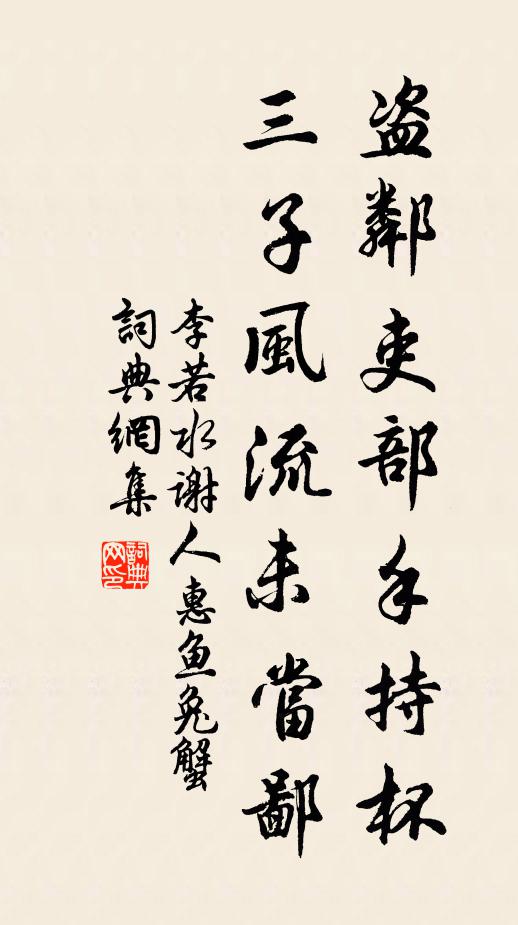 盜鄰吏部手持杯
三子風流未當鄙
李若水谢人惠鱼兔蟹
詞典網集
詞典网印